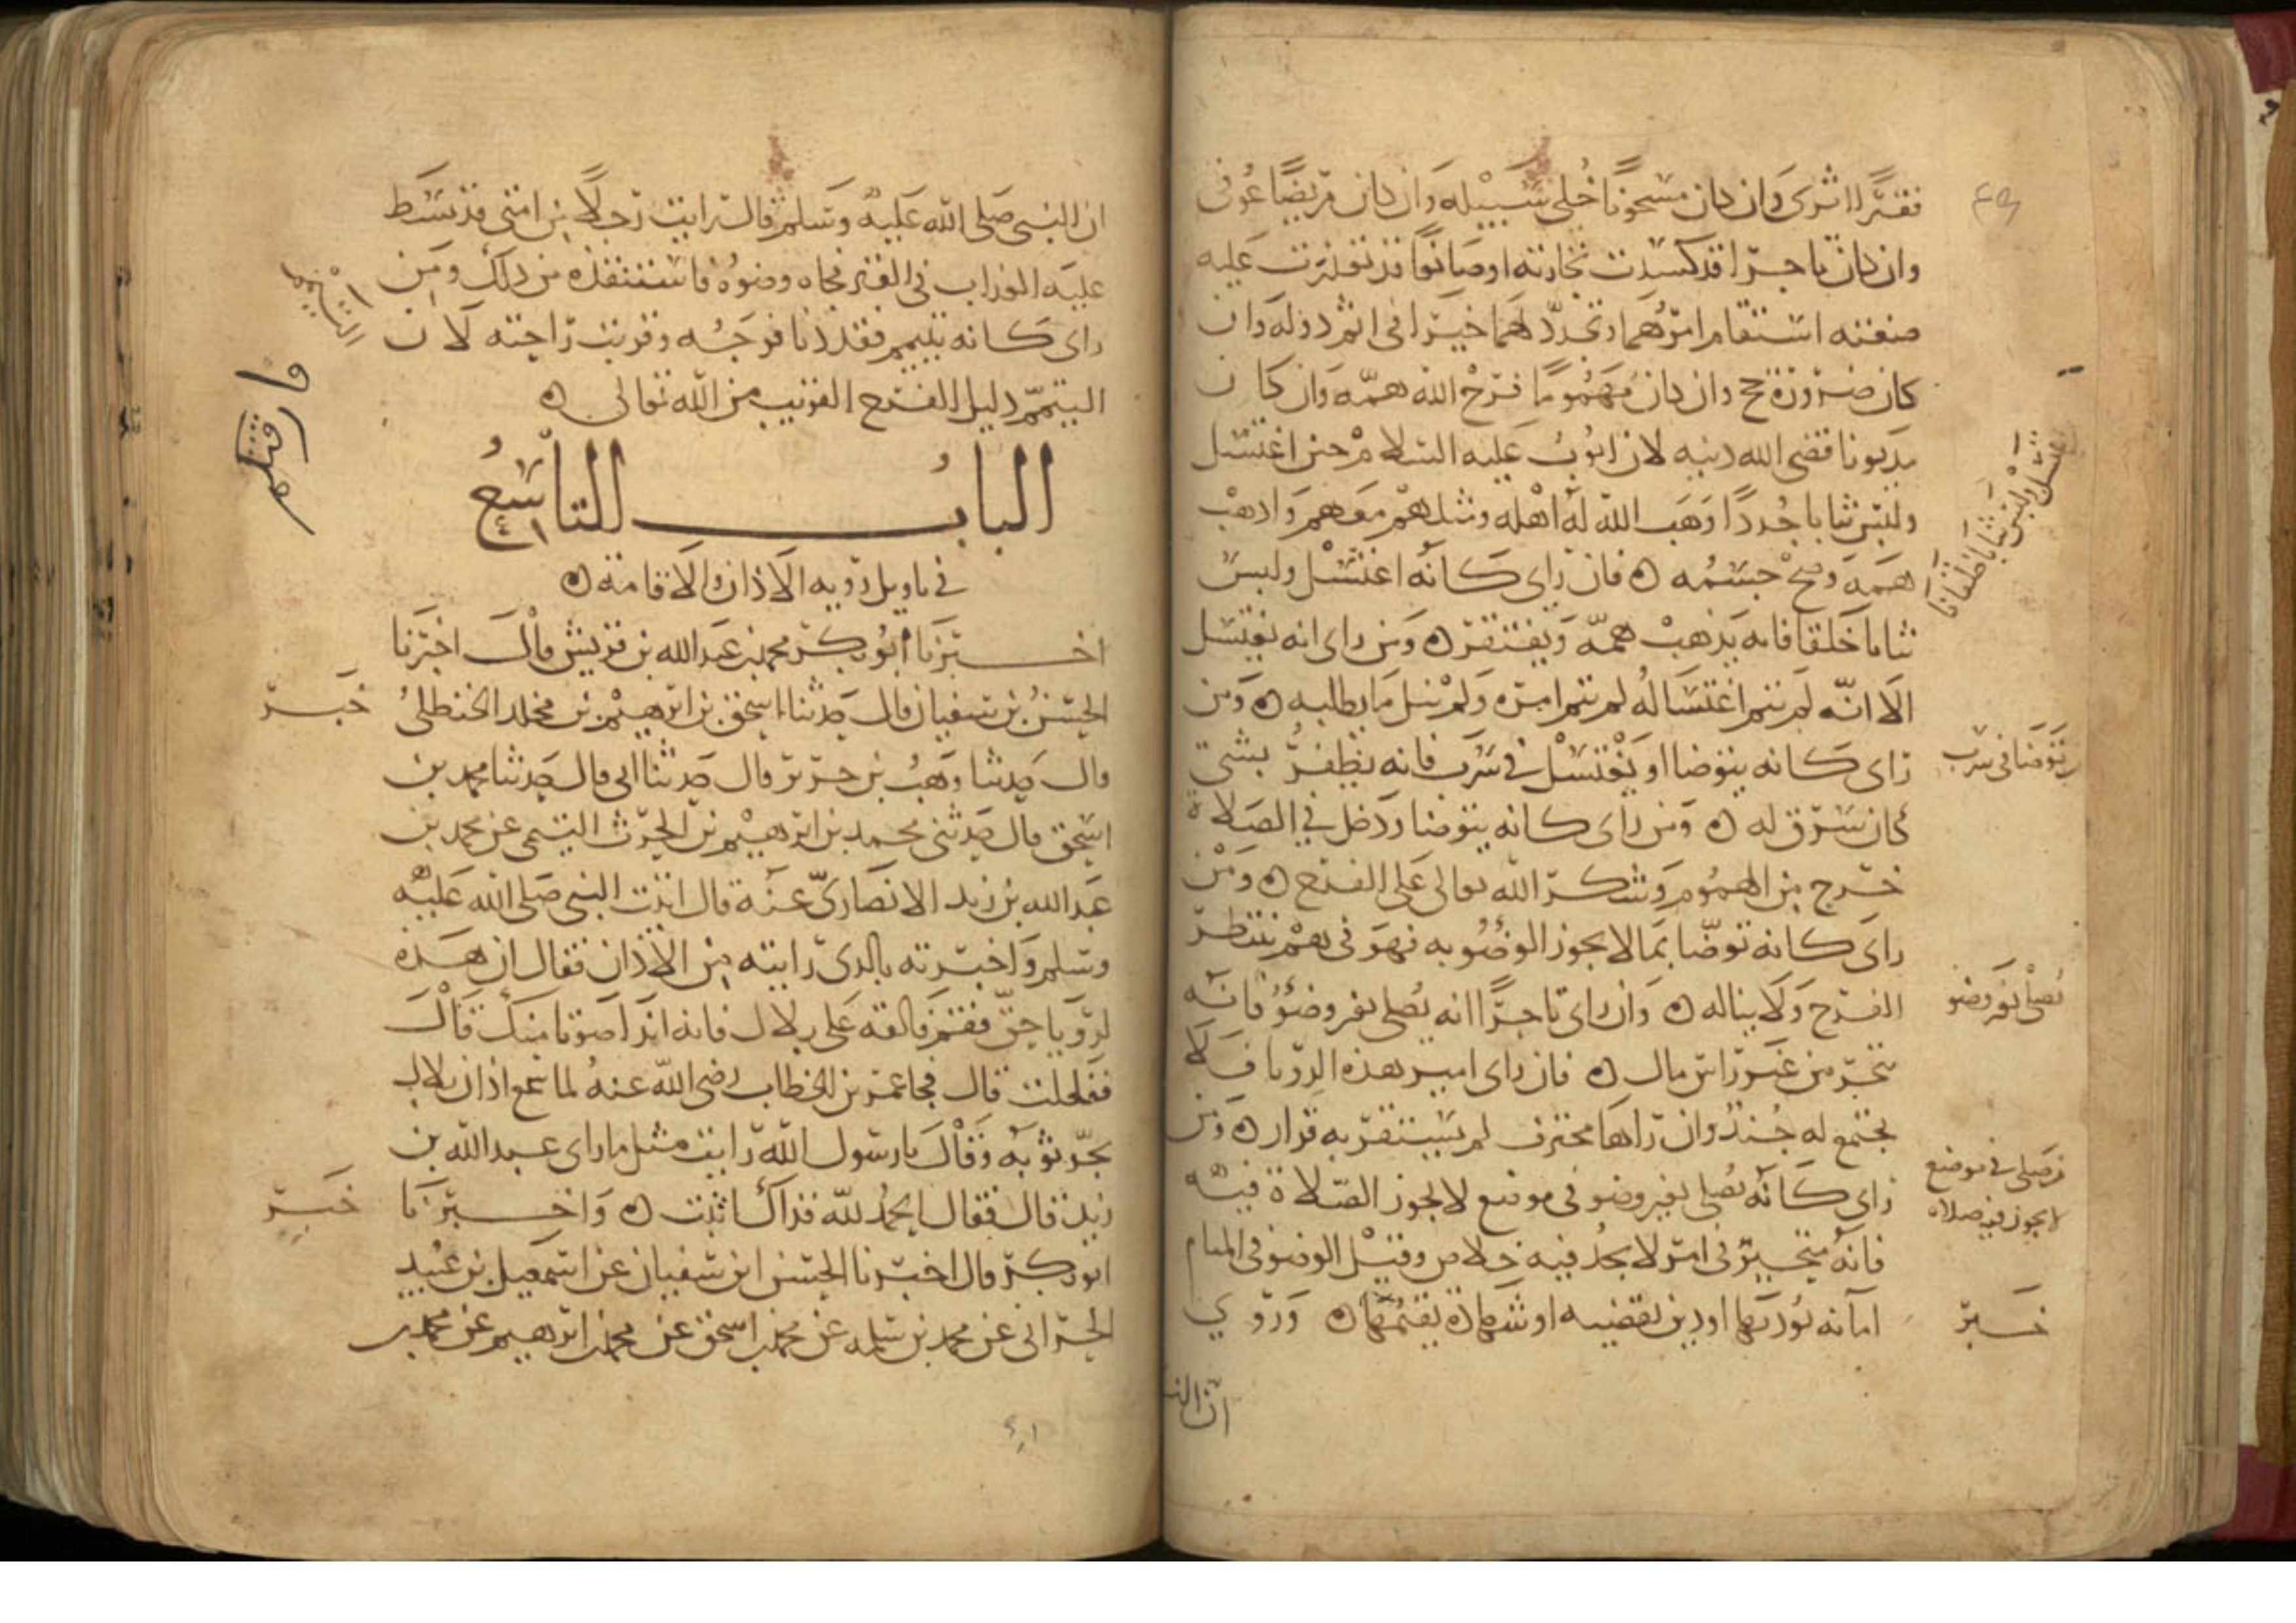 فقيرا اثرى وان كان مسجونا خلى سبيله وان كان مريضا عوفى
وان كان تاجرا قد كسدت تجارته او صانعا قد تعذرت عليه
صنعته استقام امرهما وتجدد لهما خيرا فى اتم دولة وان
كان صرورة حج وان كان مهموما فرج الله همه وان كان
مديونا قضى الله دينه لان ايوب عليه السلام حين اغتسل
ولبس ثيابا جددا وهب الله له اهله ومثلهم معهم واذهب
همه وصح جسمه ه فان راى كانه اغتسل ولبس
ثيابا خلقا فانه يذهب همه ويفتقر ه ومن راى انه يغتسل
الا انه لم يتم اغتساله لم يتم امره ولم ينل ما يطالبه ه ومن
راى كانه يتوضا او يغتسل فى سرب فانه يظفر بشى
كان سرق له ه ومن راى كانه يتوضا ودخل فى الصلاة
خرج من الهموم وشكر الله تعالى على الفرج ه ومن
راى كانه توضا بما لا يجوز الوضو به فهو فى هم ينتظر
الفرج ولا يناله ه وان راى تاجرا انه يصلى بغير وضوء فانه
يتجر من غير راس مال ه فان راى امير هذه الرويا فلا
يجتمع له جند وان راها محترف لم يستقر به قرار ه ومن
راى كانه يصلى بغير وضو فى موضع لا يجوز الصلاة فيه
فانه متحير فى امر لا يجد فيه خلاص وقيل الوضو فى المنام
امانة يوديها او دين يقضيه او شهادة يقيمها ه وروي
ان الن
اغتسل ولبس ثيابا خلقانا
يتوضا فى سرب
يصلى بغير وضو
يصلى فى موضع
لا يجوز فيه صلاة
خبر
ان النبى صلى الله عليه وسلم قال رايت رجلا من امتى قد بسط
عليه العذاب فى القبر فجاه وضوه فاستنقذه من ذلك ومن
راى كانه يتيمم فقد دنا فرجه وقربت راحته لان
التيمم دليل الفرج القريب من الله تعالى ه
الباب التاسع
فى تاويل روية الاذان والاقامة ه
اخبرنا ابو بكر محمد بن عبد الله بن قريش قال اخبرنا
الحسن بن سفيان قال حدثنا اسحق بن ابرهيم بن مخلد الحنظلى
قال حدثنا وهب بن جرير قال حدثنا ابى قال حدثنا محمد بن
اسحق قال حدثنى محمد بن ابرهيم بن الحرث التيمى عن محمد بن
عبد الله بن زيد الانصارى عنه قال اتيت النبى صلى الله عليه
وسلم واخبرته بالذى رايته من الاذان فقال ان هذه
لرويا حق فقم فالقه على بلال فانه اندا صوتا منك قال
ففعلت قال فجا عمر بن الخطاب رضى الله عنه لما سمع اذان بلال
يجر ثوبه وقال يا رسول الله رايت مثل ما راى عبد الله بن
زيد قال فقال الحمد لله فذاك اثبت ه واخبرنا
ابو بكر قال اخبرنا الحسن ابن سفيان عن اسمعيل بن عبيد
الحرانى عن محمد بن سلمه عن محمد بن اسحق عن محمد بن ابرهيم عن محمد بن
خبر
خبر